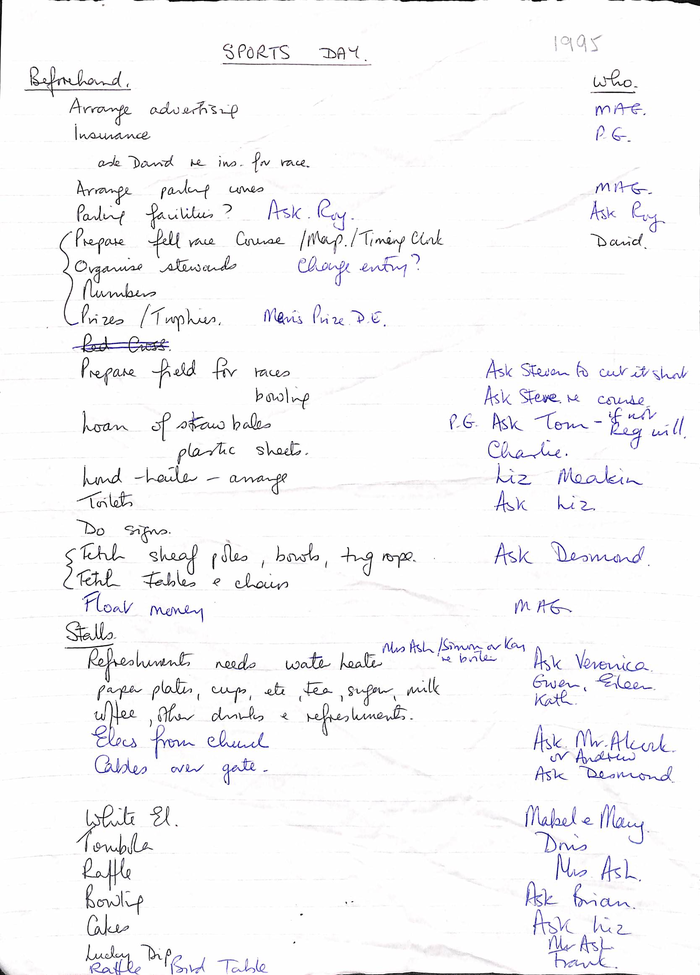 SPORTS DAY. 1995
Beforehand. Who.
Arrange advertising MAG.
Insurance P.G.
ask David re ins. for race.
Arrange parking cones MAG.
Parking facilities? Ask Roy. Ask Roy
Prepare fell race Course /Map/Timing Clock David.
Organise stewards Charge entry?
Numbers
Prizes /Trophies. Men's Prize D.E.
Red Cross.
Prepare field for races Ask Steven to cut it short
bowling Ask Steve re course
Loan of straw bales P.G. Ask Tom - if not Reg will.
plastic sheets. Charlie.
Loud-hailer - arrange Liz Meakin
Toilets Ask Liz
Do signs.
Fetch sheaf poles, bowls, tug rope. Ask Desmond.
Fetch Tables & chairs
Float money MAG
Stalls.
Refreshments needs water heater Mrs Ash/Simon or Kay re boiler Ask Veronica.
paper plates, cups, etc, tea, sugar, milk Gwen, Eileen
coffee, other drinks & refreshments. Kath.
Elecs from church Ask Mr. Alcock.
or Andrew
Cables over gate. Ask Desmond
White El. Mabel & Mary.
Tombola Doris
Raffle Mrs Ash.
Bowling Ask Brian.
Cakes Ask Liz
Lucky Dip Mr Ash
Raffle Bird Table Frank.